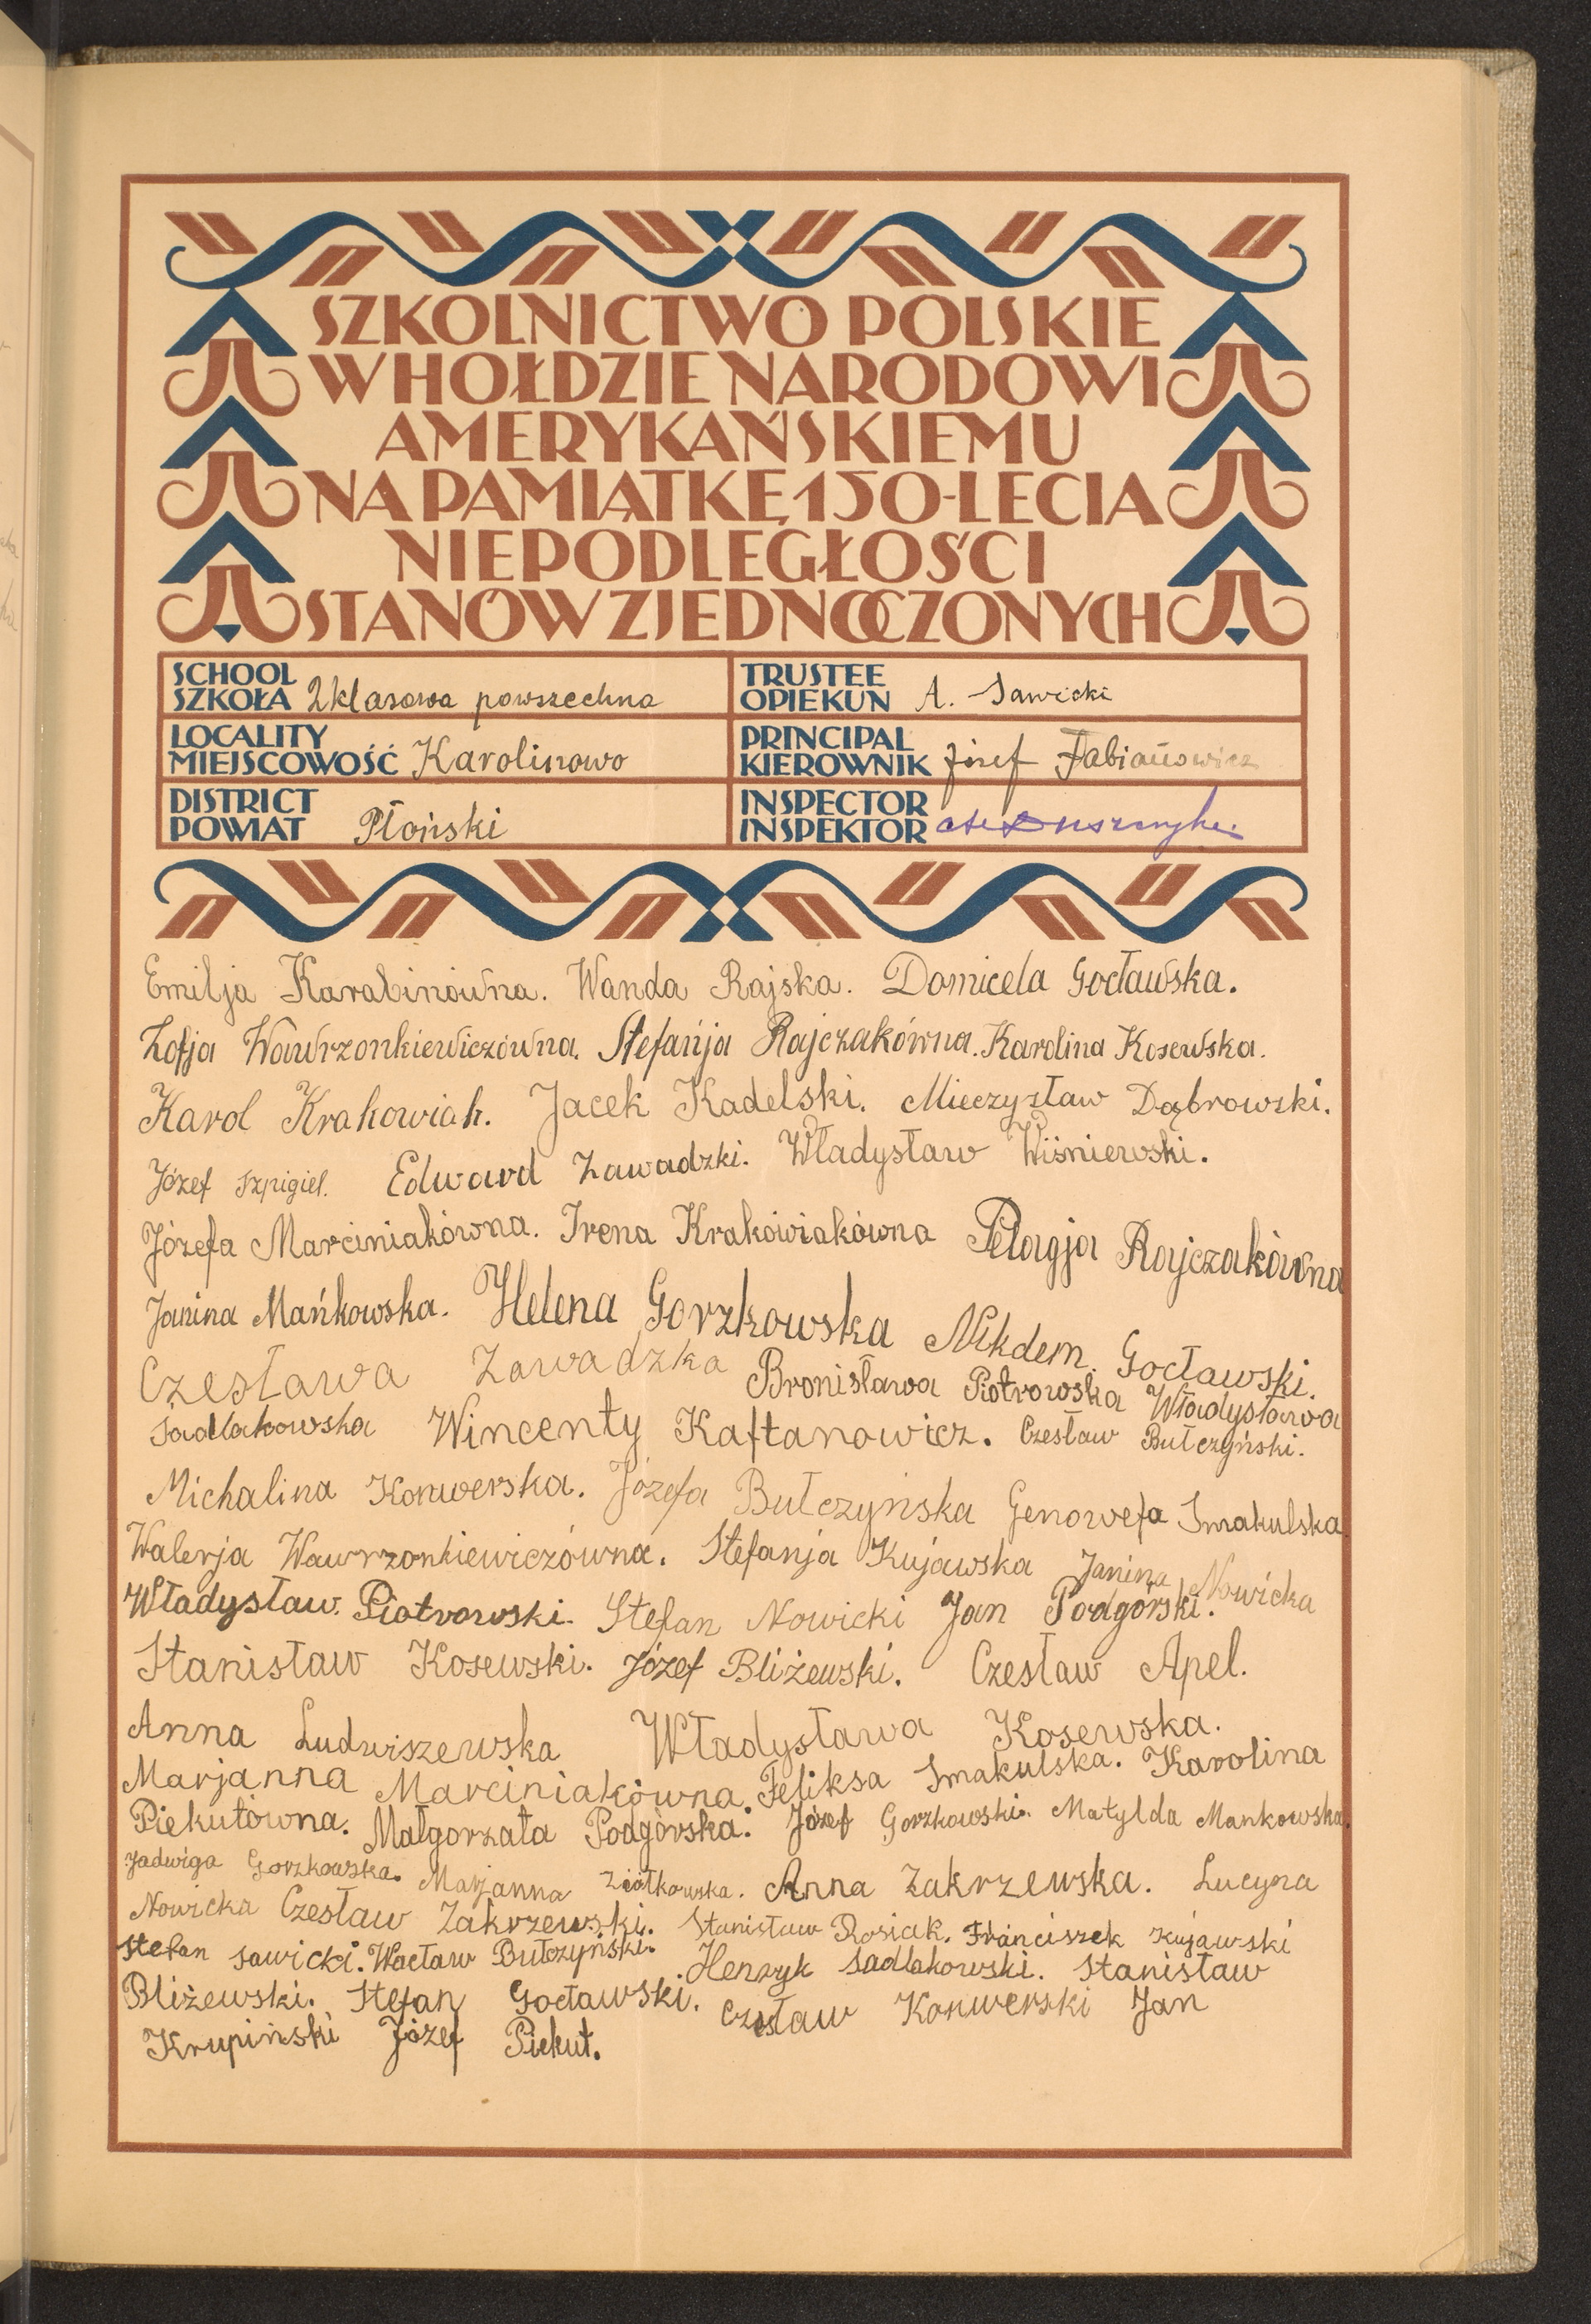 SZKOLNICTWO POLSKIE
W HOŁDZIE NARODOWI
AMERYKAŃSKIEMU
NA PAMIĄTKĘ 150-LECIA
NIEPODLEGŁOŚCI
STANÓW ZJEDNOCZONYCH
SCHOOL
SZKOŁA 2klasowa powszechna
TRUSTEE
OPIEKUN A. Sawicki
LOCALITY
MIEJSCOWOŚĆ Karolinowo
PRINCIPAL
KIEROWNIK Józef Fabianowicz
DISTRICT
POWIAT Płoński
INSPECTOR
INSPEKTOR
Emilja Karabinówna. Wanda Rajska. Domicela Gocławska.
Zofja Wawrzonkiewiczówna. Stefańja Rajczakówna. Karolina Kosewska.
Karol Krakowiak. Jacek Kadelski. Mieczysław Dąbrowski.
Józef Szpigiel. Edward Zawadzki. Władysław Wiśniewski.
Józefa Marciniakówna. Irena Krakówiakówna Pelagja Rajczakówna
Janina Mańkowska. Helena Gorzkowska Nikdem. Gocławski.
Czesława Zawadzka Bronisława Piotrowska Władysława
Sadlakowska Wincenty Kaftanowicz. Czesław Bułczyński.
Michalina Konwerska. Józefa Bułczyńska Genowefa Smakulska
Walerja Wawrzonkiewiczówna. Stefanja Kujawska Janina Nowicka
Władysław. Piotrowski. Stefan Nowicki Jan Podgórski.
Stanisław Kosewski. Józef Bliżewski. Czesław Apel.
Anna Ludwiszewska Władysława Kosewska.
Marjanna Marciniakówna. Feliksa Smakulska. Karolina
Piekutówna. Małgorzata Podgórska. Józef Gorzkowski. Matylda Mankowska.
Jadwiga Gorzkowska. Marjanna Ziółkowska. Anna Zakrzewska. Lucyna
Nowicka Czesław Zakrzewski. Stanisław Rosiak. Franciszek Kujawski
Stefan Sawicki. Wacław Bułczyński. Henryk Sadlakowski. Stanisław
Bliżewski. Stefan Gocławski. Czesław Konwerski Jan
Krupiński Józef Piekut.